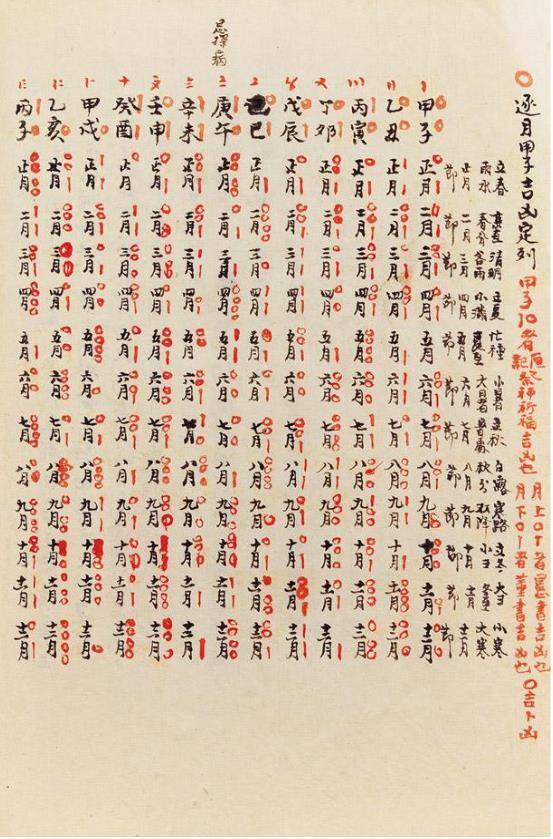 〇逐月甲子吉凶定列 甲子〇者
記祭神祈福吉凶也
月上〇丨者憲書吉凶也
月下〇丨者董書吉凶也
〇吉卜凶
立春 清明 立夏 忙種 小暑 立秋 白露 寒路 立冬 大雪 小寒
雨水 春分 谷雨 小滿 夏至 大暑 處暑 秋分 霜降 小雪 冬至 大寒
正月 二月 三月 四月 五月 六月 七月 八月 九月 十月 十一月 十二月
節 節 節 節 節 節 節 節 節 節 節 節
甲子 正月 二月 三月 四月 五月 六月 七月 八月 九月 十月 十一月 十二月
乙丑 正月 二月 三月 四月 五月 六月 七月 八月 九月 十月 十一月 十二月
丙寅 正月 二月 三月 四月 五月 六月 七月 八月 九月 十月 十一月 十二月
丁卯 正月 二月 三月 四月 五月 六月 七月 八月 九月 十月 十一月 十二月
戊辰 正月 二月 三月 四月 五月 六月 七月 八月 九月 十月 十一月 十二月
己巳 正月 二月 三月 四月 五月 六月 七月 八月 九月 十月 十一月 十二月
忌擇病
庚午 正月 二月 三月 四月 五月 六月 七月 八月 九月 十月 十一月 十二月
辛未 正月 二月 三月 四月 五月 六月 七月 八月 九月 十月 十一月 十二月
壬申 正月 二月 三月 四月 五月 六月 七月 八月 九月 十月 十一月 十二月
癸酉 正月 二月 三月 四月 五月 六月 七月 八月 九月 十月 十一月 十二月
甲戌 正月 二月 三月 四月 五月 六月 七月 八月 九月 十月 十一月 十二月
乙亥 正月 二月 三月 四月 五月 六月 七月 八月 九月 十月 十一月 十二月
丙子 正月 二月 三月 四月 五月 六月 七月 八月 九月 十月 十一月 十二月